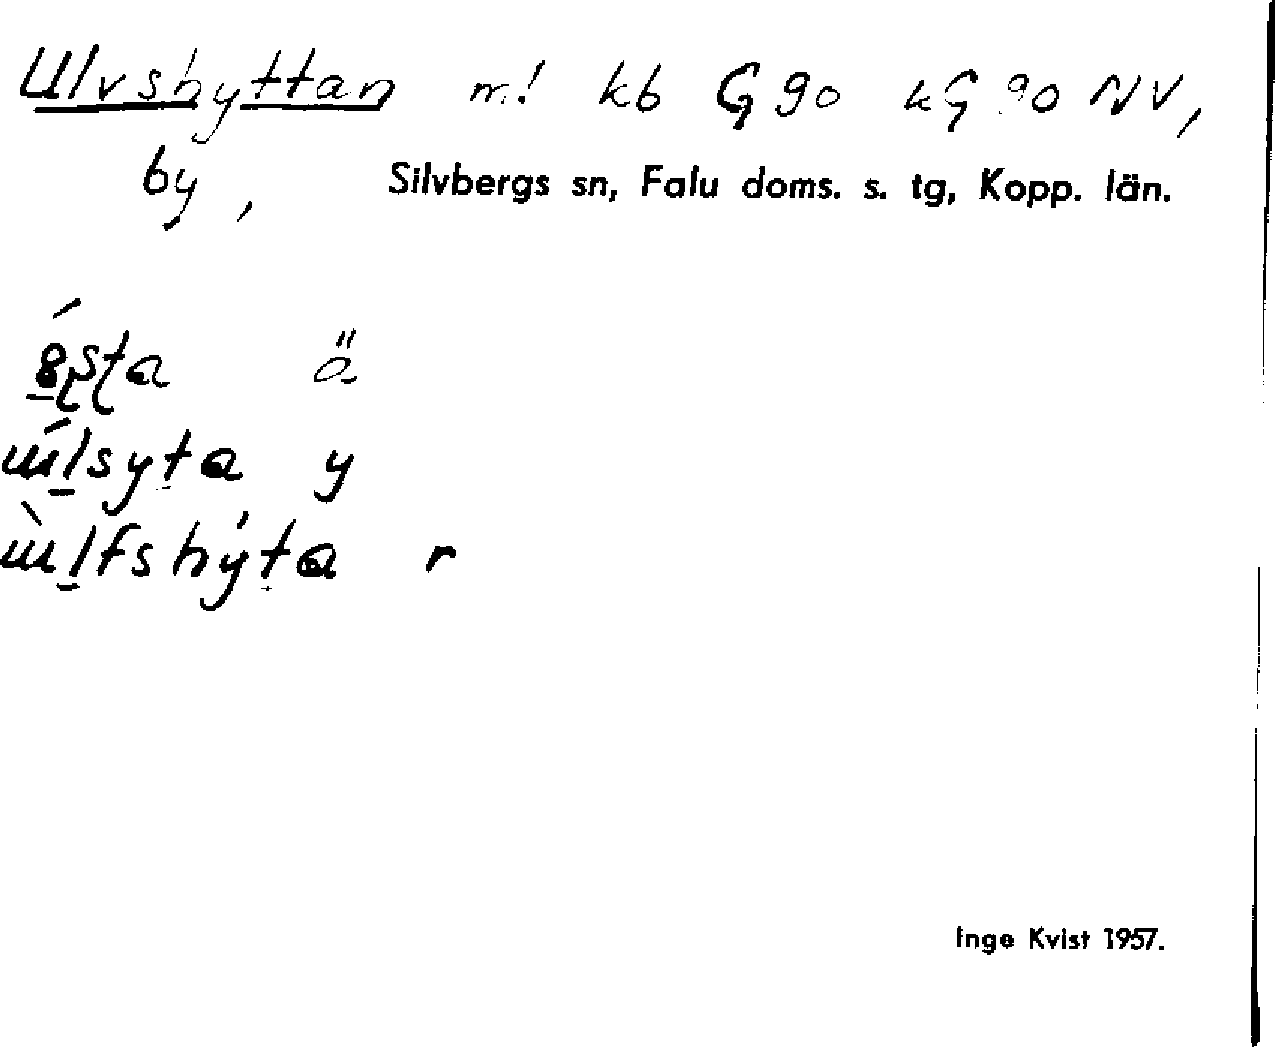 Ulvshyttan m! kb G 90 kG 90 NV,
by, Silvbergs sn, Falu doms. s. tg, Kopp. län.
ä
ɯ́lsyta y
ɯ̀lfshýta r
Inge Kvist 1957.